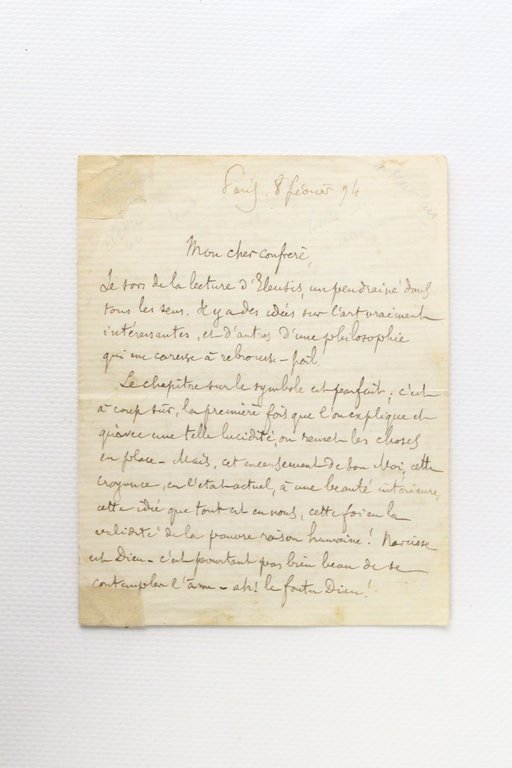 Paris, 8 février 94
Mon cher confrere,
Je sors de la lecture d'Eleusis, un peu drainé dans
tous les sens. Il y a des idées sur l'art vraiment
intéressantes, et d'autres d'une philosophie
qui me caresse à rebrousse-poil.
Le chapitre sur le symbole est parfait ; c'est
à coup sûr, la première fois que l'on explique et
qu'avec une telle lucidité, on remet les choses
en place - Mais, cet encensement de son Moi, cette
croyance, en l'etat actuel, à une beauté intérieure,
cette idée que tout est en nous, cette foi en la
validité de la pauvre raison humaine ! Narcisse
est Dieu - c'est pourtant pas bien beau de se
contempler l'âme - ah ! le Dieu !